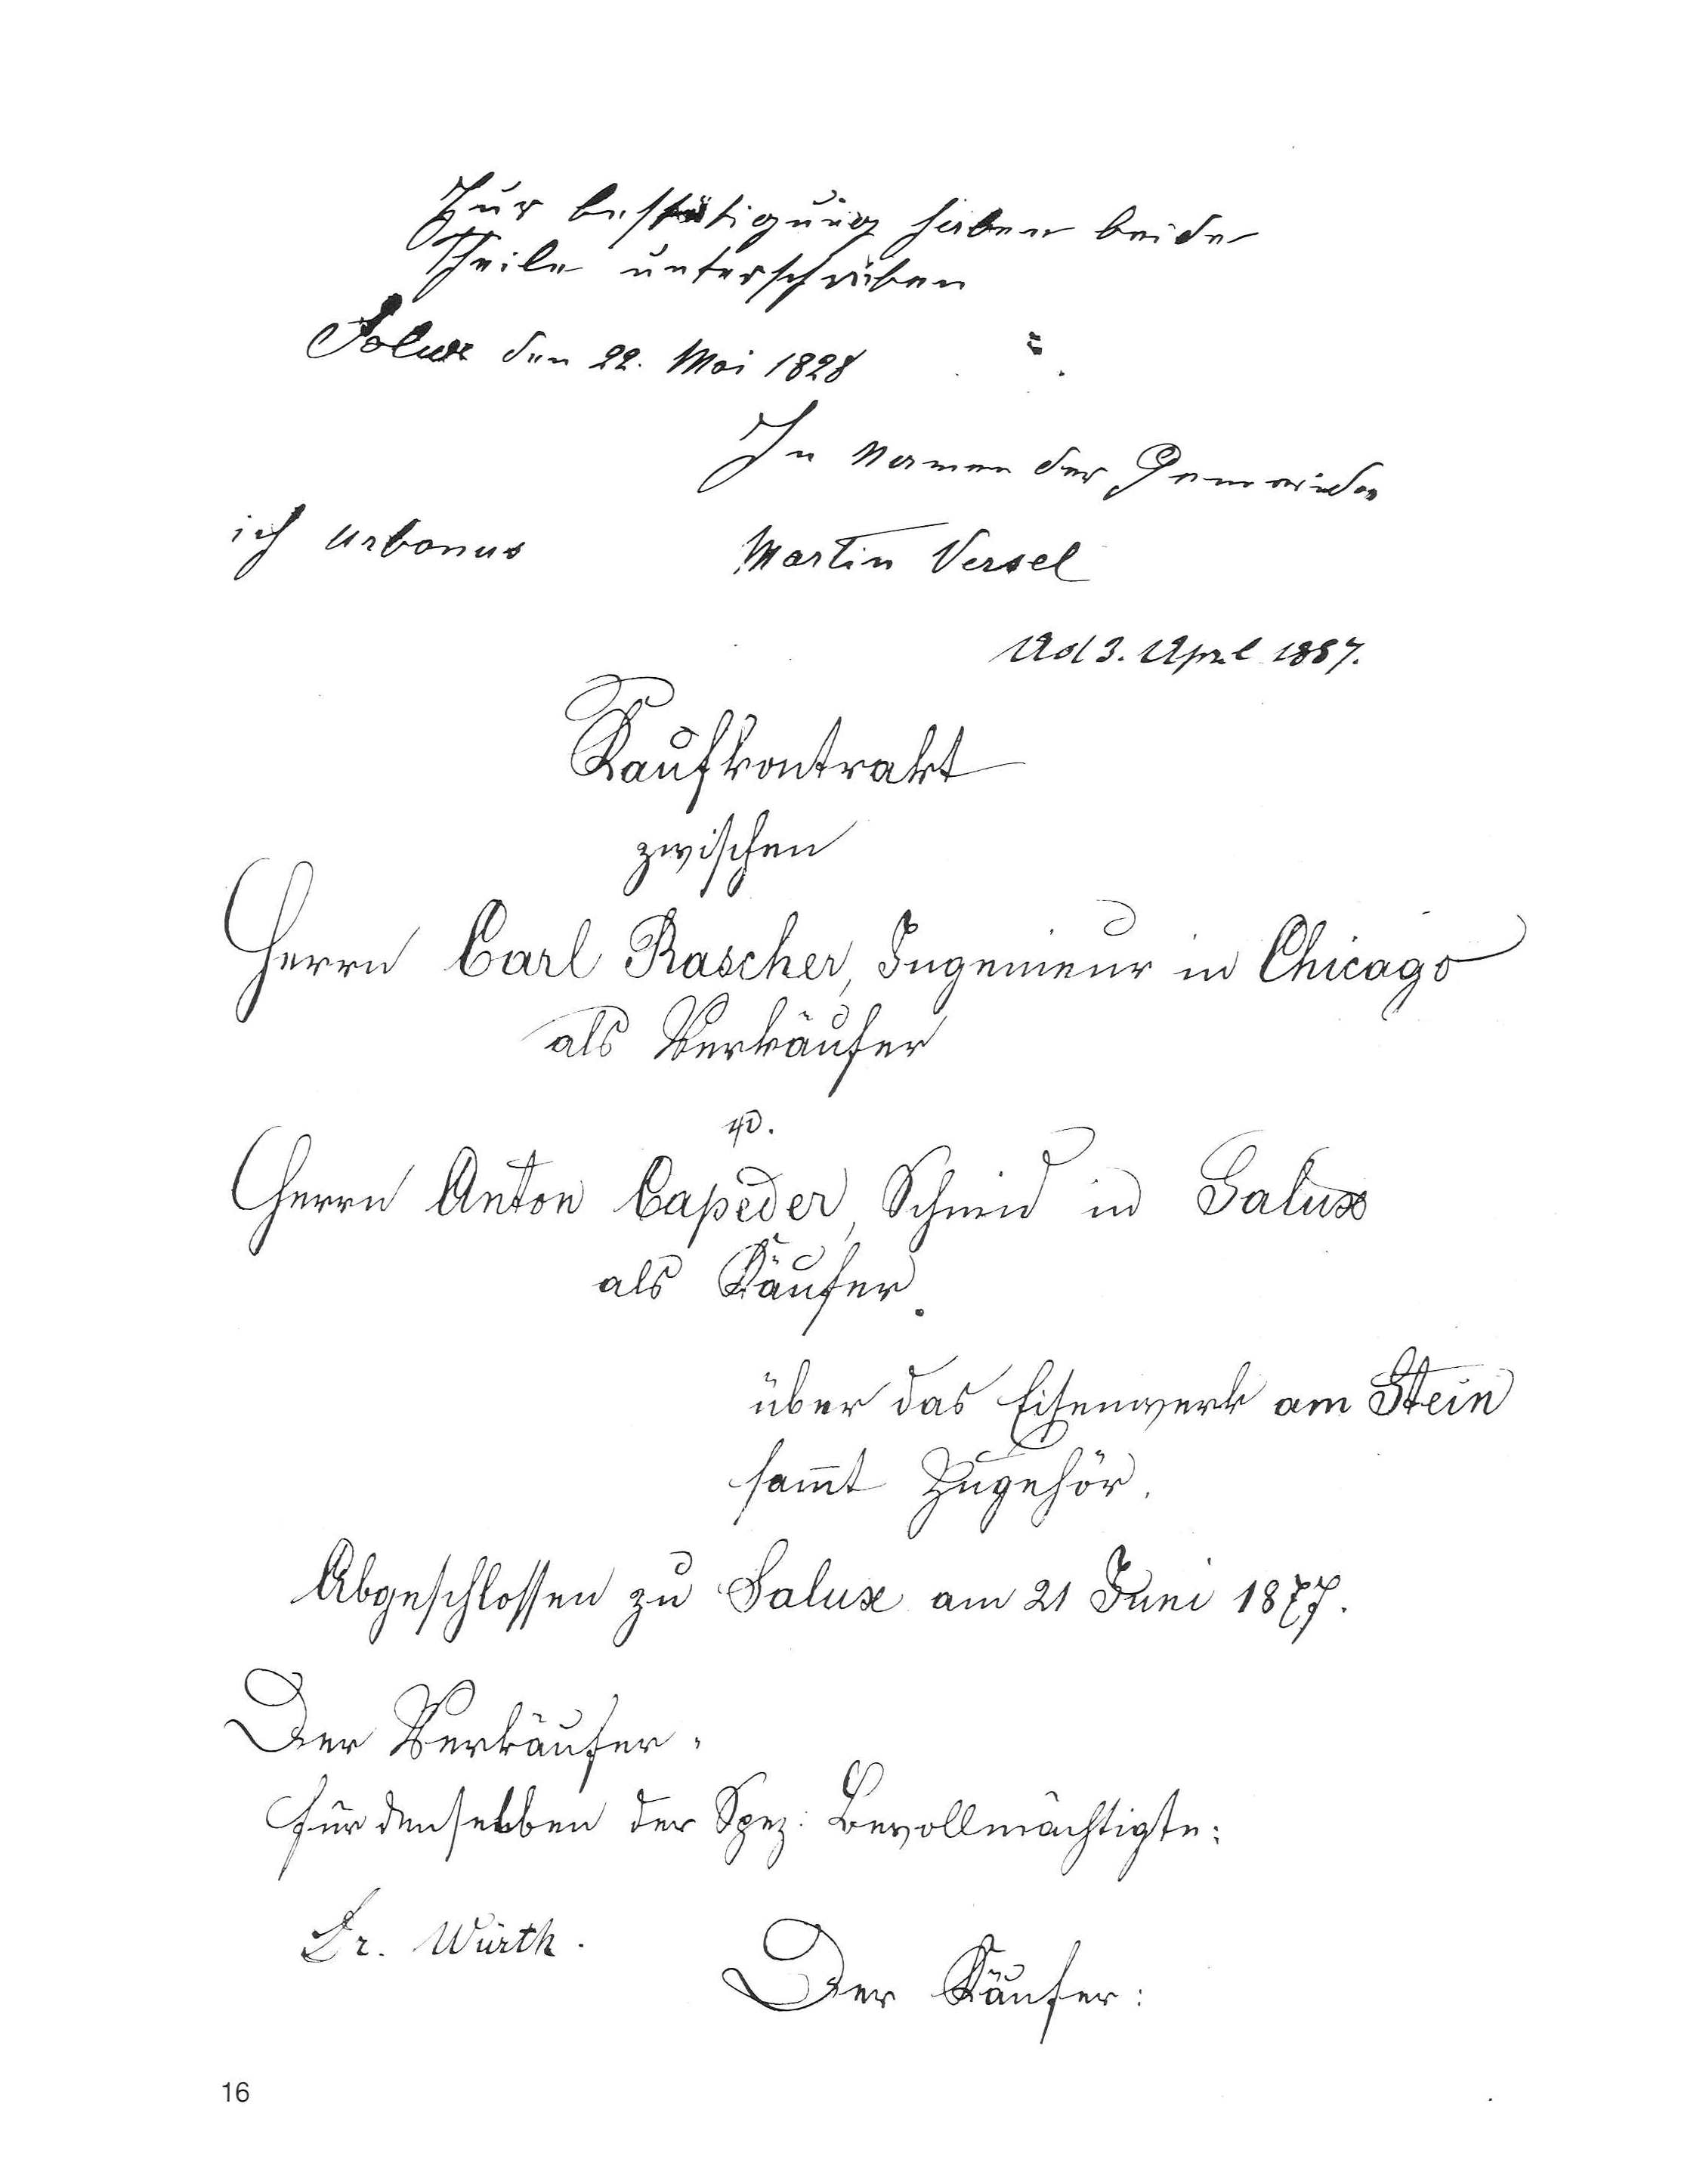 Zur bestätigung haben beide
Theile unterschriben
Salux den 22. Mai 1828
In namen der Gemeinde
ich urbanus Martin Versel
Ad 3. April 1887.
Kaufkontrakt
zwischen
Herrn Carl Rascher, Ingenieur in Chicago
als Verkäufer
Herrn Anton Capeder, Schmid in Salux
als Käufer.
über das Eisenwerk am Stein
sam̅t Zugehör.
Abgeschlossen zu Salux am 21 Juni 1877.
Der Verkäufer.
für denselben der Spez: Bevollmächtigte:
Dr. Würth.
Der Käufer:
16